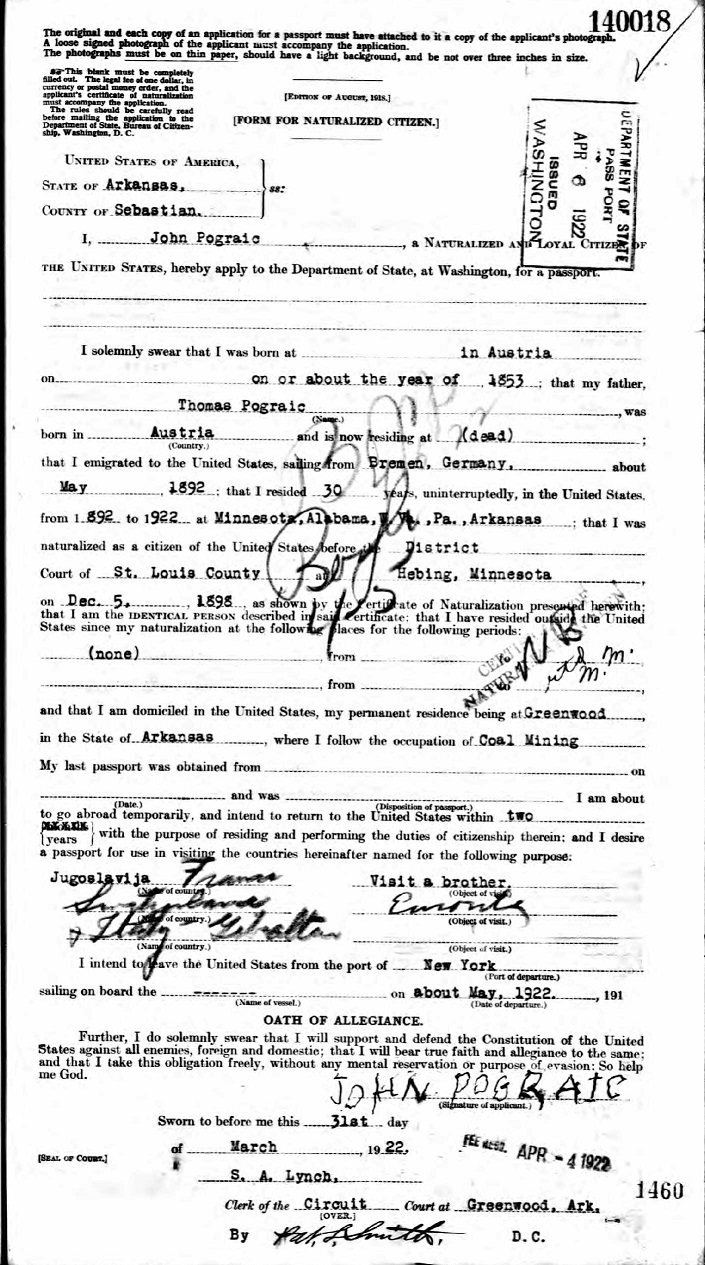 140018
The original and each copy of an application for a passport must have attached to it a copy of the applicant's photograph.
A loose signed photograph of the applicant must accompany the application.
The photographs must be on thin paper, should have a light background, and be not over three inches in size.
This blank must be completely
filled out. The legal fee of one dollar, in
currency or postal money order, and the
applicant's certificate of naturalization
must accompany the application.
The rules should be carefully read
before mailing the application to the
Department of State, Bureau of Citizen-
ship, Washington, D. C.
[EDITION OF AUGUST, 1918.]
[FORM FOR NATURALIZED CITIZEN.]
DEPARTMENT OF STATE
PASS PORT
APR 6 1922
ISSUED
WASHINGTON
UNITED STATES OF AMERICA,
STATE OF Arkansas, ss:
COUNTY OF Sebastian.
I, John Pograic, a NATURALIZED AND LOYAL CITIZEN OF
THE UNITED STATES, hereby apply to the Department of State, at Washington, for a passport.
I solemnly swear that I was born at in Austria
on on or about the year of, 1853; that my father,
Thomas Pograic, was
(Name.)
born in Austria and is now residing at (dead);
(Country.)
that I emigrated to the United States, sailing from Bremen, Germany, about
May, 1892; that I resided 30 years, uninterruptedly, in the United States,
from 1892 to 1922 at Minnesota, Alabama, Pa., Arkansas; that I was
naturalized as a citizen of the United States before the District
Court of St. Louis County at Hebing, Minnesota
on Dec. 5, 1898, as shown by the Certificate of Naturalization presented herewith;
that I am the IDENTICAL PERSON described in said Certificate; that I have resided outside the United
States since my naturalization at the following places for the following periods:
(none), from
, from
and that I am domiciled in the United States, my permanent residence being at Greenwood,
in the State of Arkansas, where I follow the occupation of Coal Mining
My last passport was obtained from on
and was I am about
(Date.) (Disposition of passport.)
to go abroad temporarily, and intend to return to the United States within two
years with the purpose of residing and performing the duties of citizenship therein; and I desire
a passport for use in visiting the countries hereinafter named for the following purpose:
Jugoslavija France Visit a brother.
(Name of country.) (Object of visit.)
Switzerland Enroute
(Name of country.) (Object of visit.)
Italy - Gibraltar
(Name of country.) (Object of visit.)
I intend to leave the United States from the port of New York
(Port of departure.)
sailing on board the ------- on about May, 1922., 191
(Name of vessel.) (Date of departure.)
OATH OF ALLEGIANCE.
Further, I do solemnly swear that I will support and defend the Constitution of the United
States against all enemies, foreign and domestic; that I will bear true faith and allegiance to the same;
and that I take this obligation freely, without any mental reservation or purpose of evasion: So help
me God.
JOHN POGRAIC
(Signature of applicant.)
Sworn to before me this 31st day
of March, 1922.
[SEAL OF COURT.]
APR -4 1922
S. A. Lynch,
1460
Clerk of the Circuit Court at Greenwood, Ark.
[OVER.]
By Pat. L Smith, D. C.